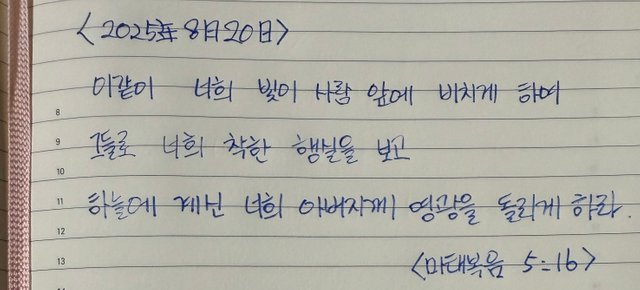 <2025年 8月 20日>
이같이 너희 빛이 사람 앞에 비치게 하여
8
그들로 너희 착한 행실을 보고
9
10
하늘에 계신 너희 아버지께 영광을 돌리게 하라.
11
12
<마태복음 5:16>
13